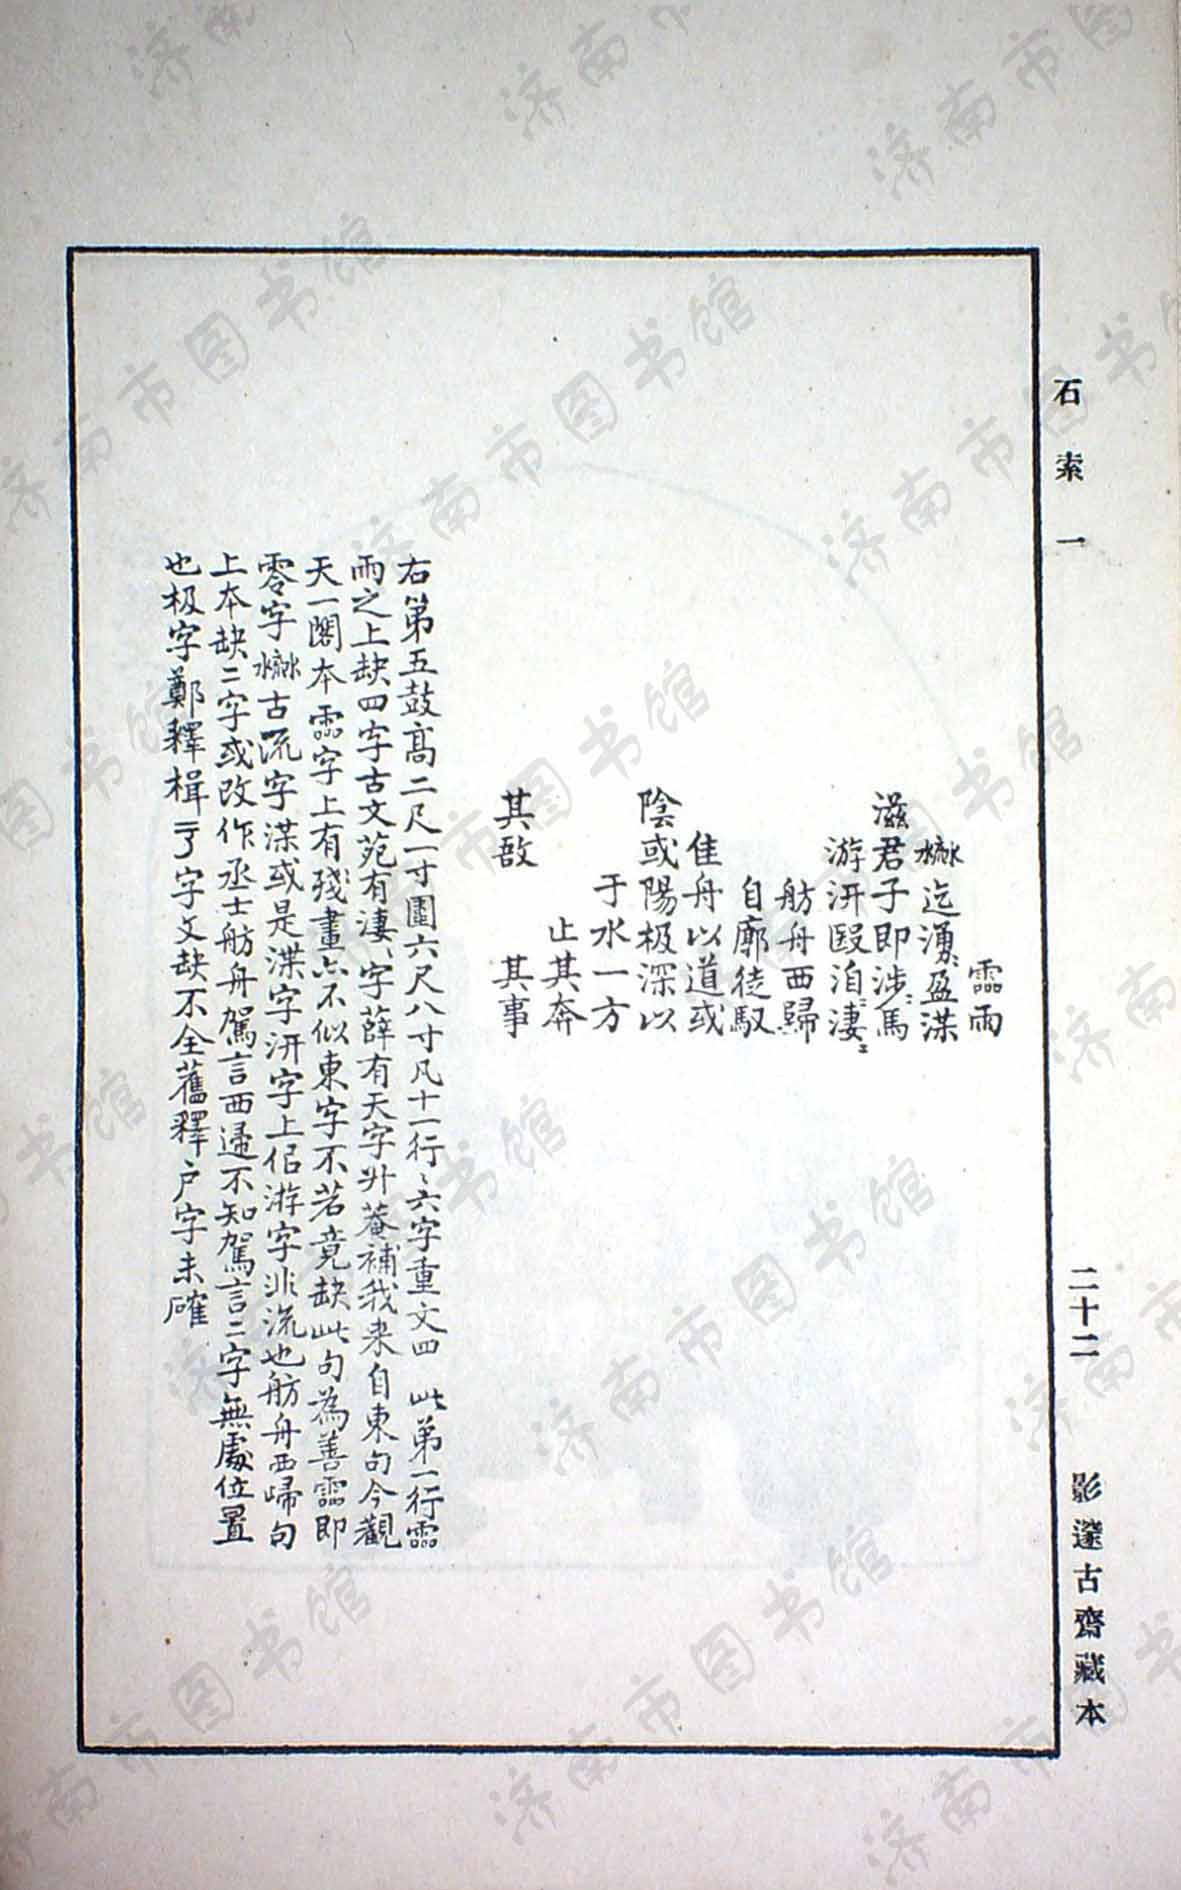 石索一　二十二　影邃古齋藏本
霝雨
𣻣迄湧〻盈渫
滋君子即涉〻馬
游汧殹洎〻淒〻
舫舟西歸
自廓徒馭
隹舟以道或
陰或陽极深以
于水一方
止其奔
其敔　其事
右第五鼓高二尺一寸圍六尺八寸凡十一行〻六字重文四 此第一行霝
雨之上缺四字古文苑有淒〻字薛有天字升菴補我來自東句今觀
天一閣本霝字上有殘畫亦不似東字不若竟缺此句為善霝即
零字𣻣古流字渫或是渫字汧字上侣游字非流也舫舟西歸句
上本缺二字或改作丞士舫舟駕言西遄不知駕言二字無處位置
也极字鄭釋楫亍字文缺不全舊釋户字未確
济南市图书馆